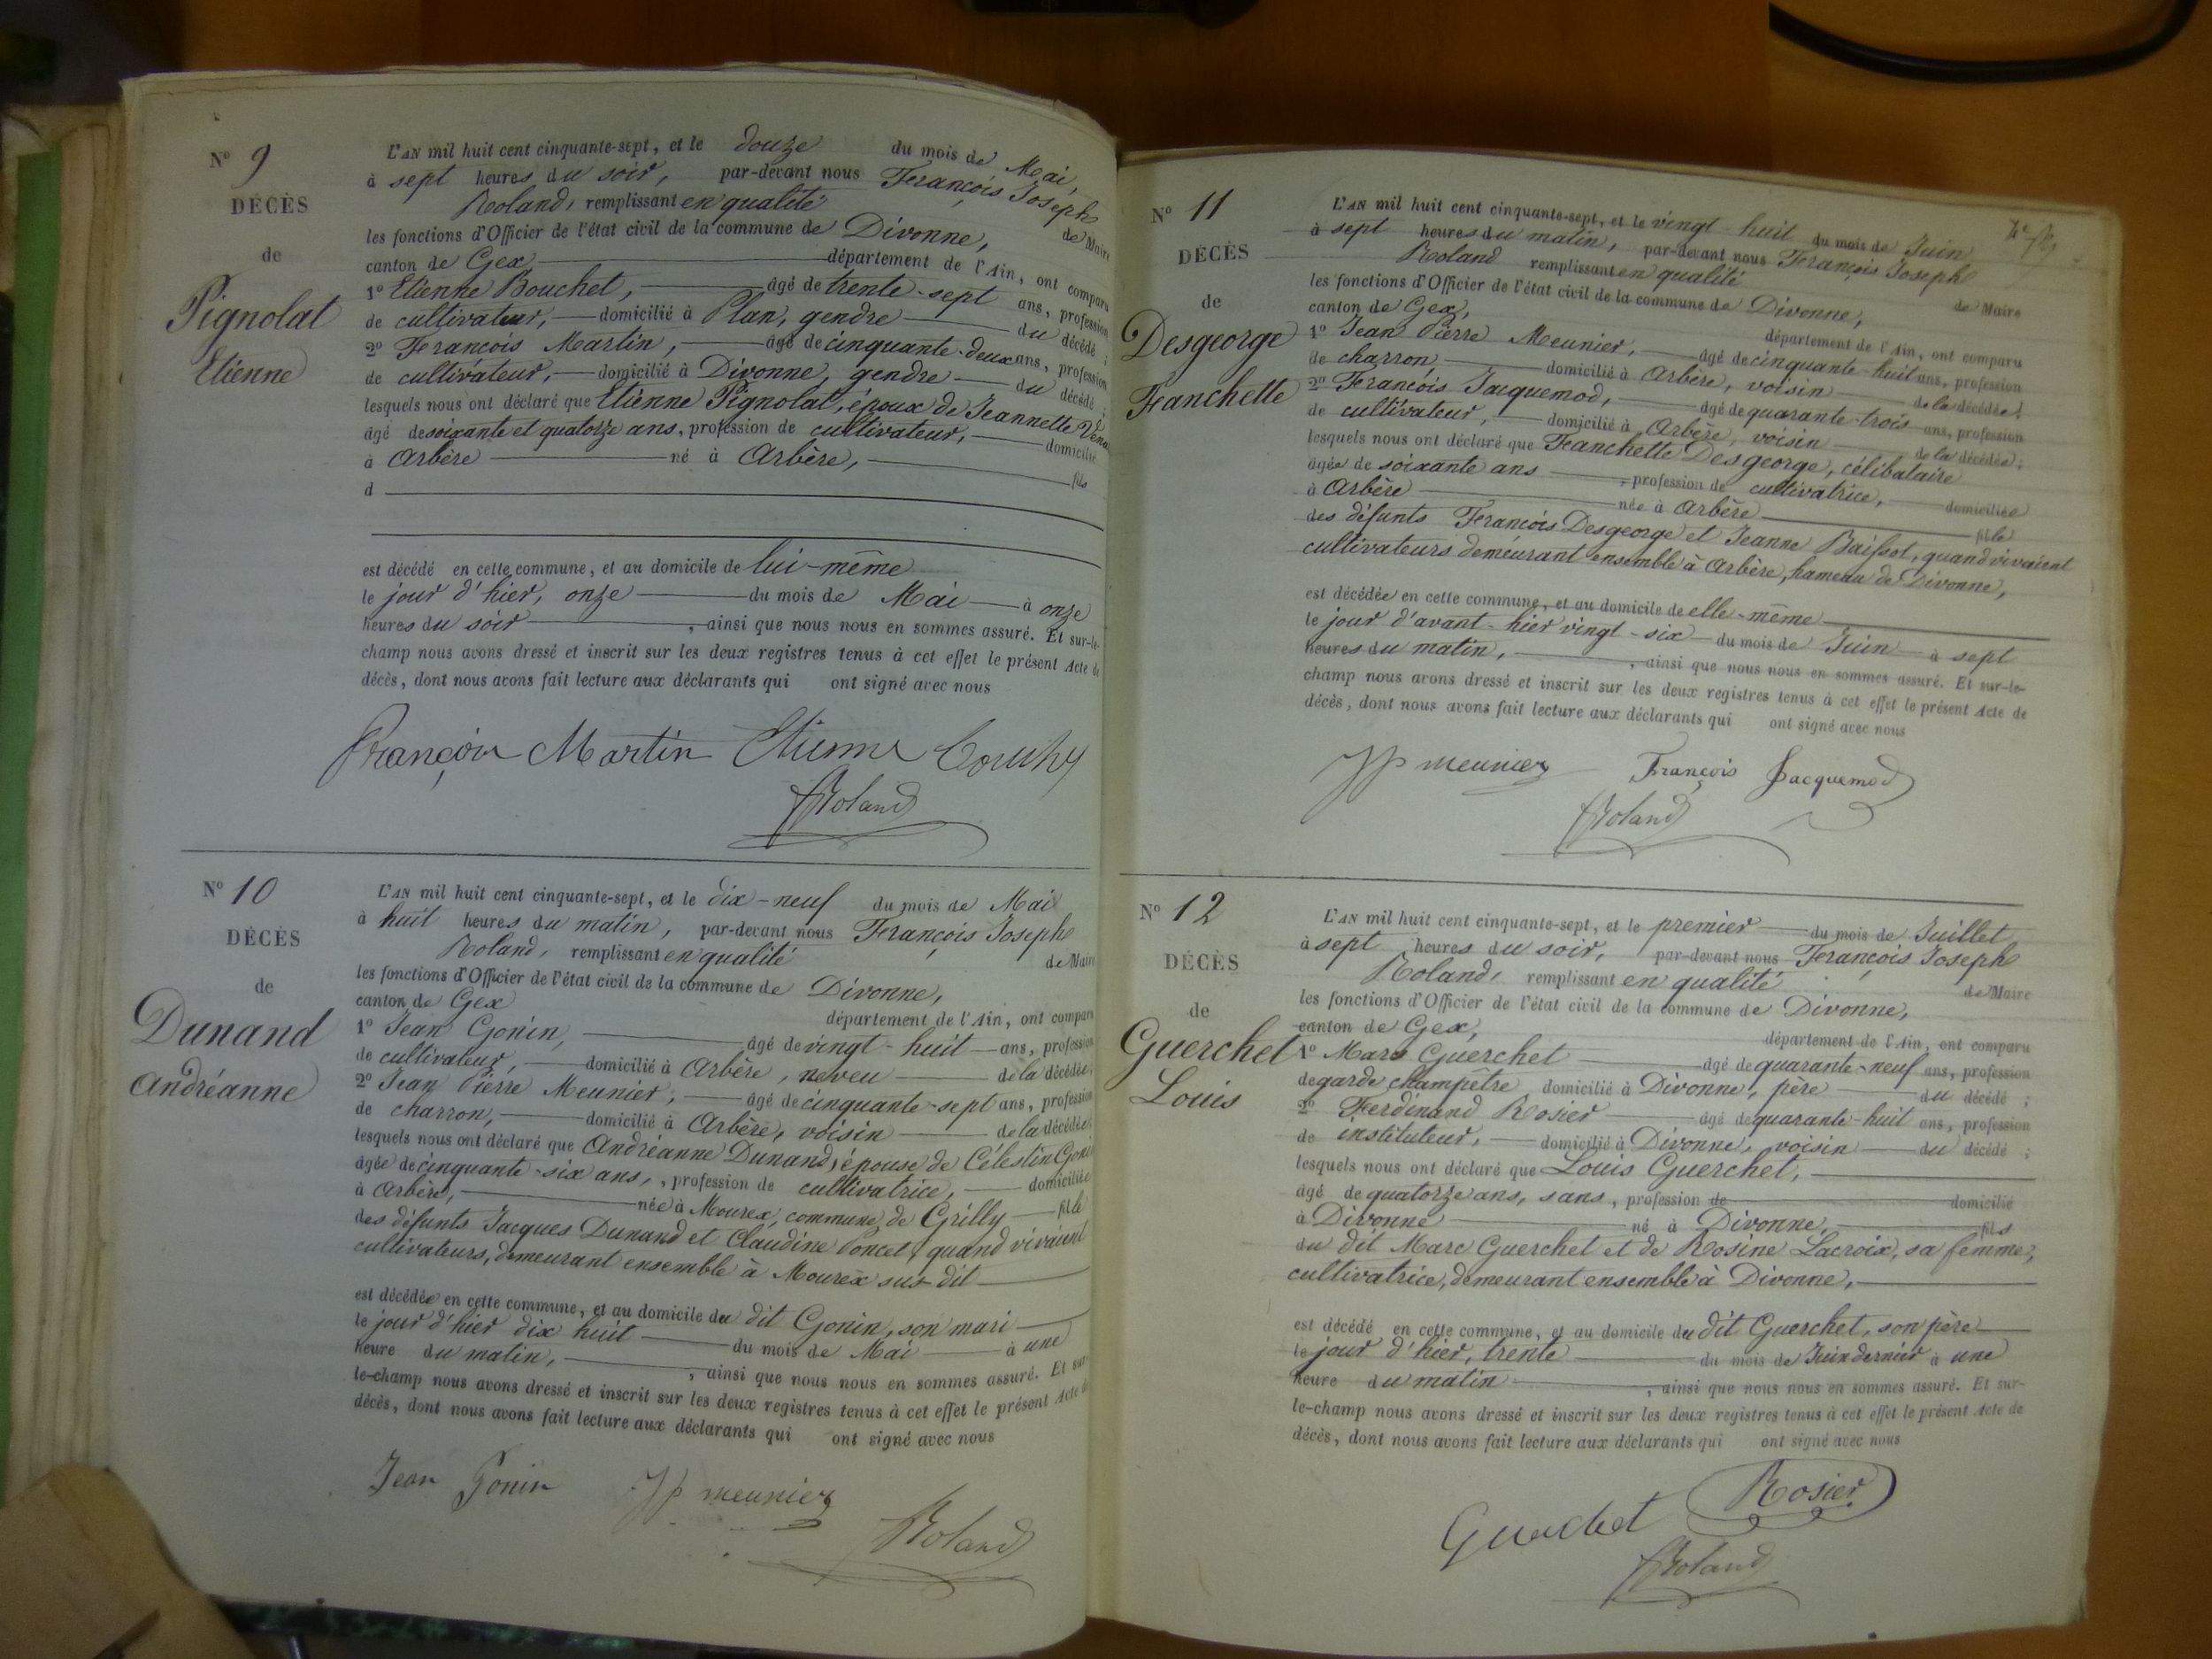 N° 9
DÉCÈS
de
Pignolat
Etienne
L'AN mil huit cent cinquante-sept, et le douze du mois de Mai,
à sept heures du soir, par-devant nous François Joseph
Roland, remplissant en qualité de Maire
les fonctions d'Officier de l'état civil de la commune de Divonne,
canton de Gex département de l'Ain, ont comparu
1° Etienne Bouchet, âgé de trente-sept ans, profession
de cultivateur, domicilié à Plan, gendre du décédé ;
2° François Martin, âgé de cinquante-deux ans, profession
de cultivateur, domicilié à Divonne, gendre du décédé ;
lesquels nous ont déclaré que Etienne Pignolat, époux de Jeannette
âgé de soixante et quatorze ans, profession de cultivateur, domicilié
à Arbère né à Arbère, fils
d
est décédé en cette commune, et au domicile de lui-même
le jour d'hier, onze du mois de Mai à onze
heures du soir, ainsi que nous nous en sommes assuré. Et sur-le-
champ nous avons dressé et inscrit sur les deux registres tenus à cet effet le présent Acte de
décès, dont nous avons fait lecture aux déclarants qui ont signé avec nous
François Martin Etienne
Roland
N° 10
DÉCÈS
de
Dunand
Andréanne
L'AN mil huit cent cinquante-sept, et le dix-neuf du mois de Mai
à huit heures du matin, par-devant nous François Joseph
Roland, remplissant en qualité de Maire
les fonctions d'Officier de l'état civil de la commune de Divonne,
canton de Gex département de l'Ain, ont comparu
1° Jean Gonin, âgé de vingt-huit ans, profession
de cultivateur, domicilié à Arbère, neveu de la décédée ;
2° Jean Pierre Meunier, âgé de cinquante-sept ans, profession
de charron, domicilié à Arbère, voisin de la décédée ;
lesquels nous ont déclaré que Andréanne Dunand, épouse de Célestin Gonin
âgée de cinquante-six ans, profession de cultivatrice, domiciliée
à Arbère, née à Mourex, commune de Grilly fille
des défunts Jacques Dunand et Claudine Poncet, quand vivaient
cultivateurs, demeurant ensemble à Mourex sus-dit
est décédée en cette commune, et au domicile du dit Gonin, son mari
le jour d'hier dix huit du mois de Mai à une
heure du matin, ainsi que nous nous en sommes assuré. Et sur-
le-champ nous avons dressé et inscrit sur les deux registres tenus à cet effet le présent Acte de
décès, dont nous avons fait lecture aux déclarants qui ont signé avec nous
Jean Gonin JP meunier
Roland
N° 11
DÉCÈS
de
Desgeorge
Franchette
L'AN mil huit cent cinquante-sept, et le vingt-huit du mois de Juin
à sept heures du matin, par-devant nous François Joseph
Roland remplissant en qualité de Maire
les fonctions d'Officier de l'état civil de la commune de Divonne,
canton de Gex, département de l'Ain, ont comparu
1° Jean Pierre Meunier, âgé de cinquante-huit ans, profession
de charron, domicilié à Arbère, voisin de la décédée ;
2° François Jacquemod, âgé de quarante-trois ans, profession
de cultivateur, domicilié à Arbère, voisin de la décédée ;
lesquels nous ont déclaré que Franchette Desgeorge, célibataire
âgée de soixante ans, profession de cultivatrice, domiciliée
à Arbère née à Arbère fille
des défunts François Desgeorge et Jeanne Baissot, quand vivaient
cultivateurs demeurant ensemble à Arbère, hameau de Divonne,
est décédée en cette commune, et au domicile de elle-même
le jour d'avant-hier vingt-six du mois de Juin à sept
heures du matin, ainsi que nous nous en sommes assuré. Et sur-le-
champ nous avons dressé et inscrit sur les deux registres tenus à cet effet le présent Acte de
décès, dont nous avons fait lecture aux déclarants qui ont signé avec nous
JP meunier François Jacquemod
Roland
N° 12
DÉCÈS
de
Guerchet
Louis
L'AN mil huit cent cinquante-sept, et le premier du mois de Juillet
à sept heures du soir, par-devant nous François Joseph
Roland, remplissant en qualité de Maire
les fonctions d'Officier de l'état civil de la commune de Divonne,
canton de Gex, département de l'Ain, ont comparu
1° Marc Guerchet âgé de quarante-neuf ans, profession
de garde champêtre domicilié à Divonne, père du décédé ;
2° Ferdinand Rosier âgé de quarante-huit ans, profession
de instituteur, domicilié à Divonne, voisin du décédé ;
lesquels nous ont déclaré que Louis Guerchet,
âgé de quatorze ans, sans, profession de domicilié
à Divonne né à Divonne, fils
du dit Marc Guerchet et de Rosine Lacroix, sa femme,
cultivatrice, demeurant ensemble à Divonne,
est décédé en cette commune, et au domicile du dit Guerchet, son père
le jour d'hier, trente du mois de Juin dernier à une
heure du matin, ainsi que nous nous en sommes assuré. Et sur-
le-champ nous avons dressé et inscrit sur les deux registres tenus à cet effet le présent Acte de
décès, dont nous avons fait lecture aux déclarants qui ont signé avec nous
Guerchet Rosier
Roland